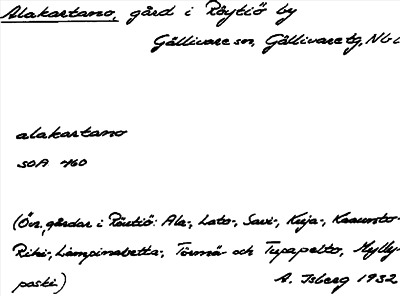 Alakartano, gård i Pöytiö by
Gällivare sn, Gällivare tg, Nbl
alakartano
SOA 460
(Öv. gårdar i Pöutiö: Ala-, Lato-, Savi-, Kuja-,
Riki-, Lampinabetta-, Törmä- och Tupapelto, Mylly-
poski) A. Isberg 1932